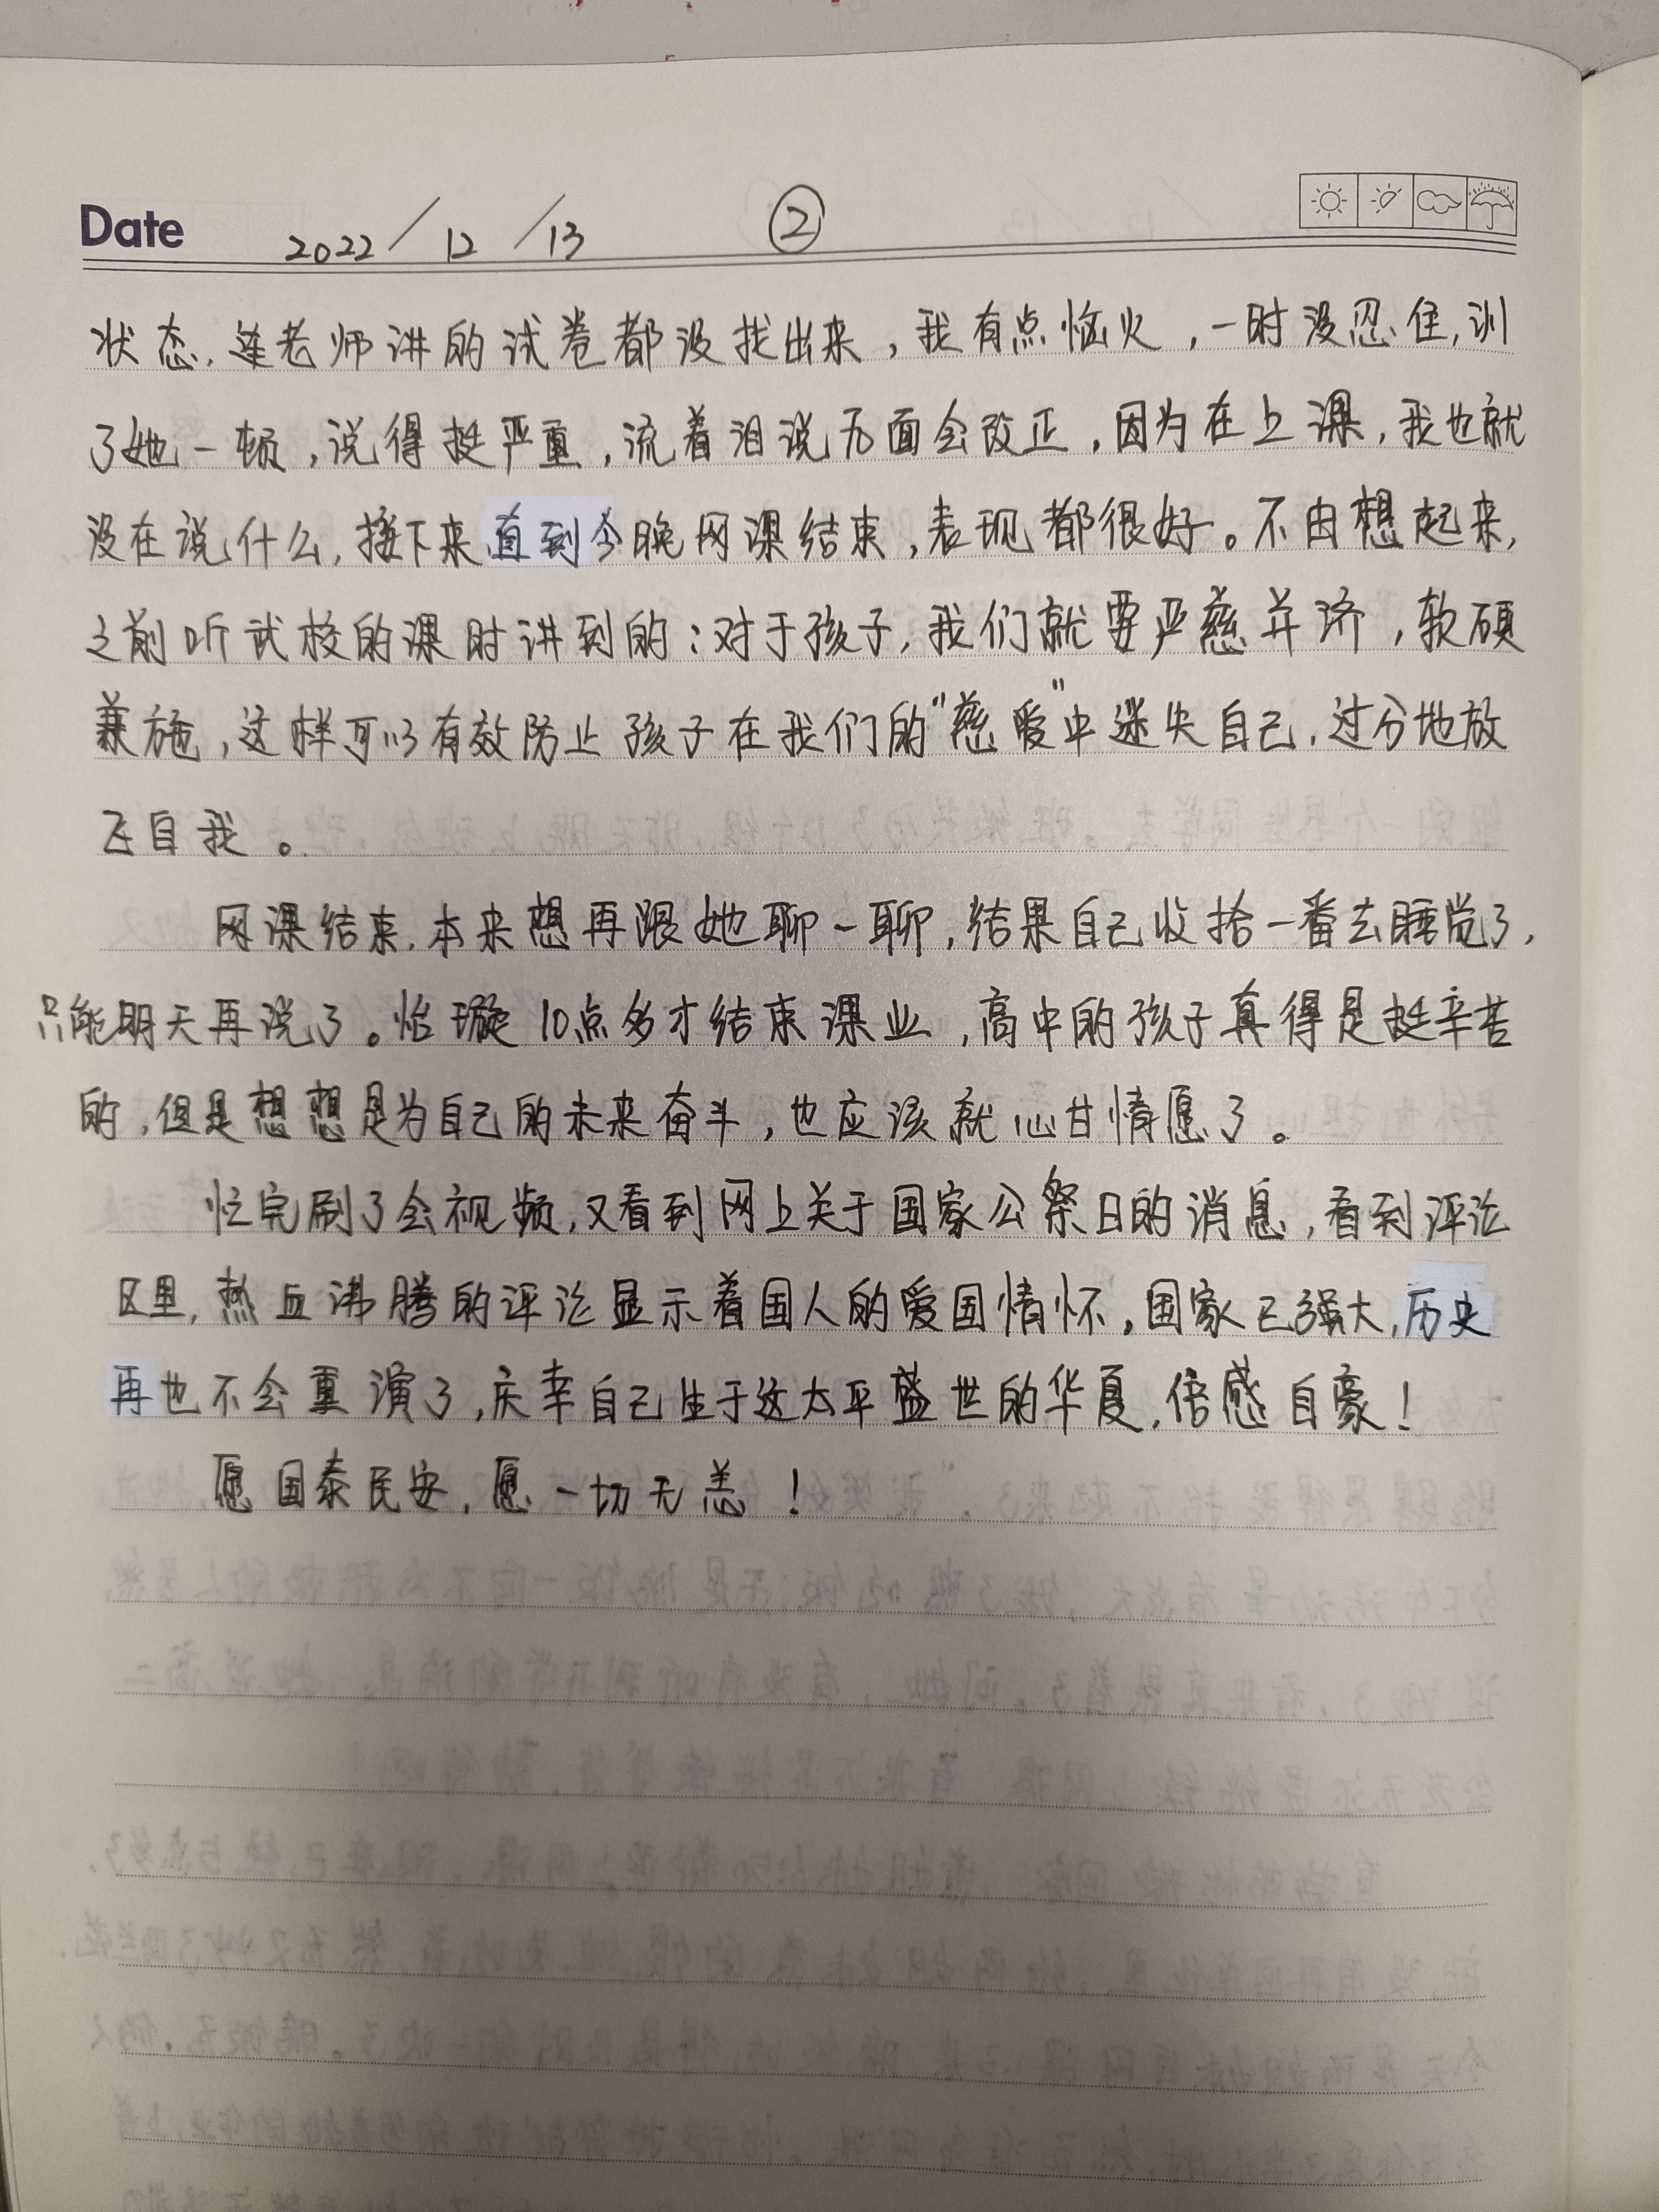 Date 2022/12/13 ②
状态,连老师讲的试卷都没找出来,我有点恼火,一时没忍住,训
了她一顿,说得挺严重,流着泪说后面会改正,因为在上课,我也就
没在说什么,接下来直到今晚网课结束,表现都很好。不由想起来,
之前听试校的课时讲到的:对于孩子,我们就要严慈并济,软硬
兼施,这样可以有效防止孩子在我们的"慈爱"中迷失自己,过分地放
飞自我。
网课结束,本来想再跟她聊一聊,结果自己收拾一番去睡觉了,
只能明天再说了。怡璇10点多才结束课业,高中的孩子真得是挺辛苦
的,但是想想是为自己的未来奋斗,也应该就心甘情愿了。
忙完刷了会视频,又看到网上关于国家公祭日的消息,看到评论
区里,热血沸腾的评论显示着国人的爱国情怀,国家已强大,历史
再也不会重演了,庆幸自己生于这太平盛世的华夏,倍感自豪!
愿国泰民安,愿一切无恙!